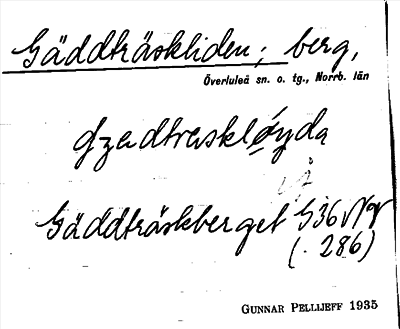 Gäddträskliden; berg,
Överluleå sn. o. tg., Norrb. län
gzedtrasklöyda
på
Gäddträskberget G36 Nv
(. 286)
GUNNAR PELLIJEFF 1935